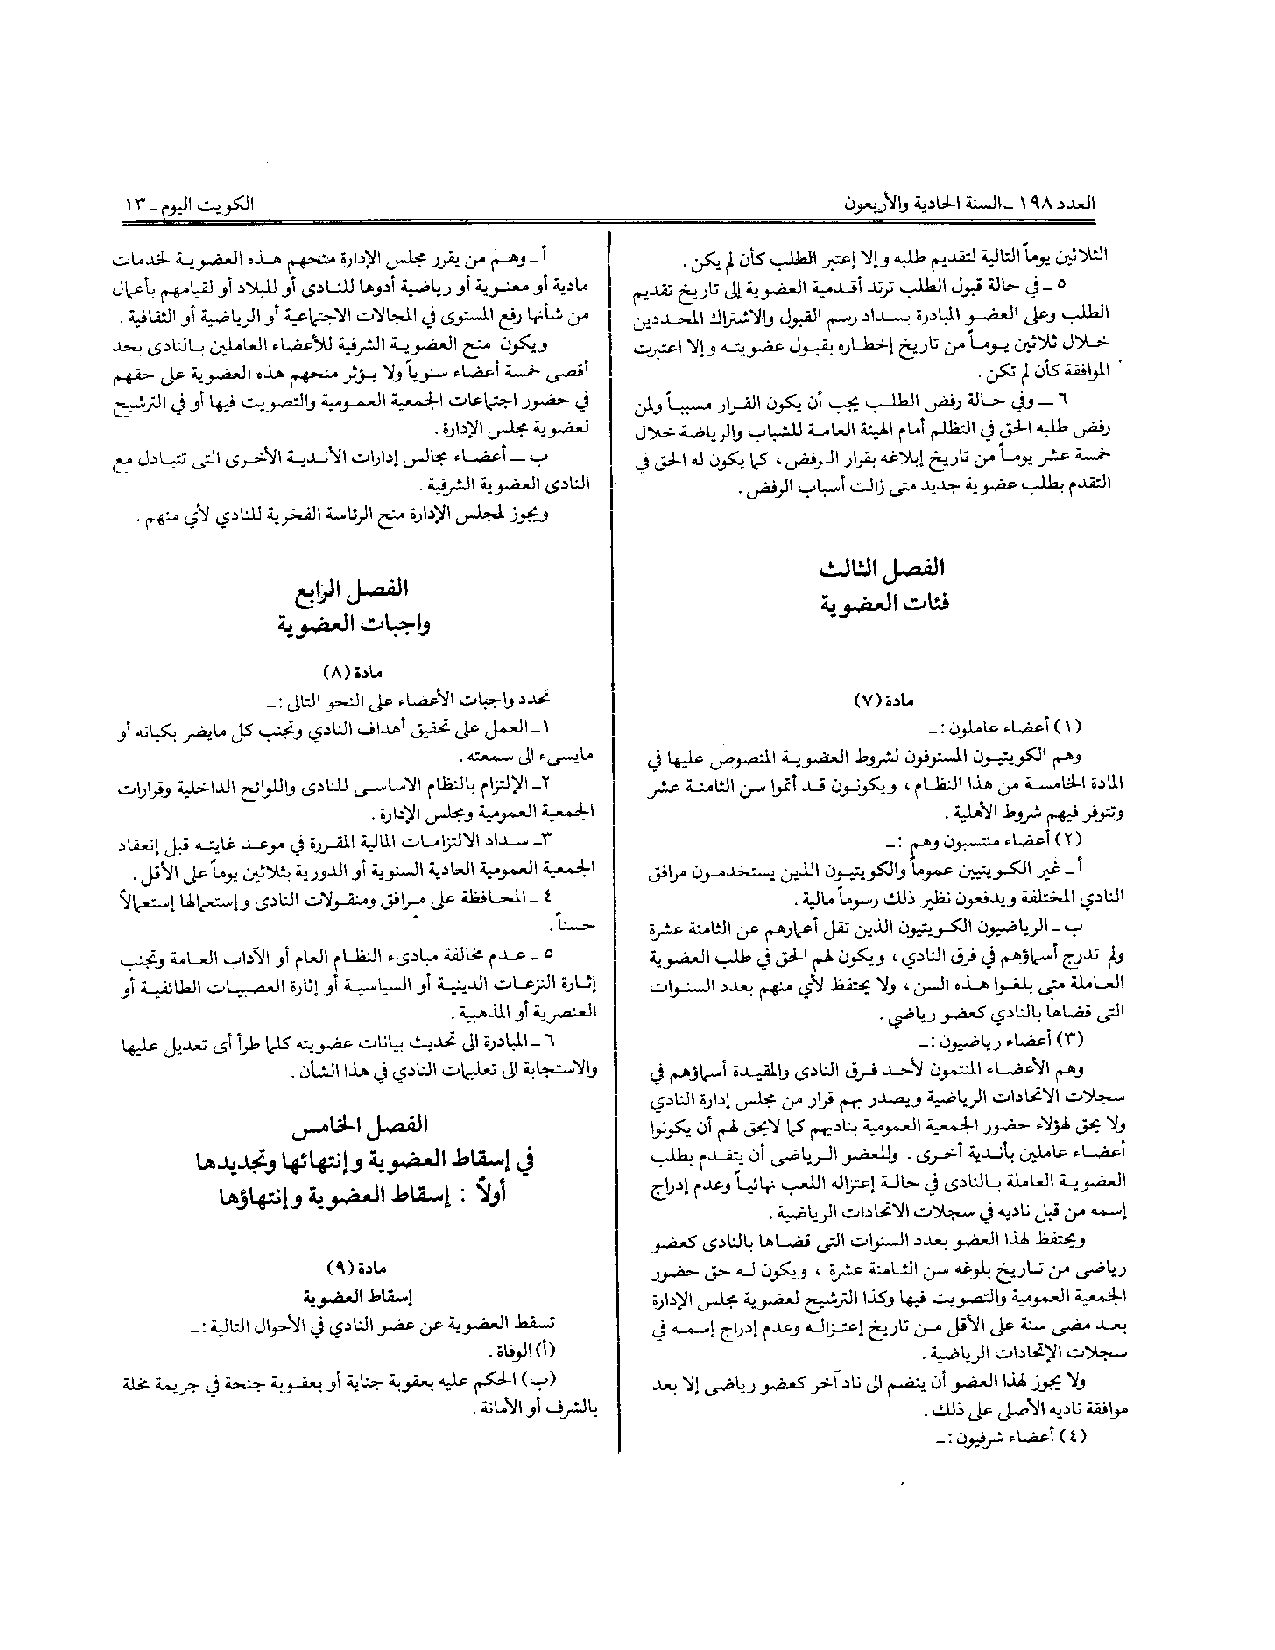 العدد ١٩٨ ــ السنة الحادية والأربعون
الكويت اليوم ــ ١٣
الثلاثين يوماً التالية لتقديم طلبه وإلا إعتبر الطلب كأن لم يكن .
٥ ــ في حالة قبول الطلب ترتد أقدمية العضوية إلى تاريخ تقديم
الطلب وعلى العضو المبادرة بسداد رسم القبول والاشتراك المحددين
خلال ثلاثين يوماً من تاريخ إخطاره بقبول عضويته وإلا اعتبرت
الموافقة كأن لم تكن .
٦ ــ وفي حالة رفض الطلب يجب أن يكون القرار مسبباً ولمن
رفض طلبه الحق في التظلم أمام الهيئة العامة للشباب والرياضة خلال
خمسة عشر يوماً من تاريخ إبلاغه بقرار الرفض ، كما يكون له الحق في
التقدم بطلب عضوية جديد متى زالت أسباب الرفض .
الفصل الثالث
فئات العضوية
مادة (٧)
(١) أعضاء عاملون :ــ
وهم الكويتيون المستوفون لشروط العضوية المنصوص عليها في
المادة الخامسة من هذا النظام ، ويكونون قد أتموا سن الثامنة عشر
وتتوفر فيهم شروط الأهلية .
(٢) أعضاء منتسبون وهم :ــ
أ ــ غير الكويتيين عموماً والكويتيون الذين يستخدمون مرافق
النادي المختلفة ويدفعون نظير ذلك رسوماً مالية .
ب ــ الرياضيون الكويتيون الذين تقل أعمارهم عن الثامنة عشرة
ولم تدرج أسماؤهم في فرق النادي ، ويكون لهم الحق في طلب العضوية
العاملة متى بلغوا هذه السن ، ولا يحتفظ لأي منهم بعدد السنوات
التى قضاها بالنادي كعضو رياضي .
(٣) أعضاء رياضيون :ــ
وهم الأعضاء المنتمون لأحد فرق النادى والمقيدة أسماؤهم في
سجلات الاتحادات الرياضية ويصدر بهم قرار من مجلس إدارة النادى
ولا يحق لهؤلاء حضور الجمعية العمومية بناديهم كما لايحق لهم أن يكونوا
أعضاء عاملين بأندية أخرى . وللعضو الرياضى أن يتقدم بطلب
العضوية العاملة بالنادى في حالة إعتزاله اللعب نهائياً وعدم إدراج
إسمه من قبل ناديه في سجلات الاتحادات الرياضية .
ويحتفظ لهذا العضو بعدد السنوات التى قضاها بالنادى كعضو
رياضى من تاريخ بلوغه سن الثامنة عشرة ، ويكون له حق حضور
الجمعية العمومية والتصويت فيها وكذا الترشيح لعضوية مجلس الإدارة
بعد مضى سنة على الأقل من تاريخ إعتزاله وعدم إدراج إسمه في
سجلات الإتحادات الرياضية .
ولا يجوز لهذا العضو أن ينضم الى ناد آخر كعضو رياضى إلا بعد
موافقة ناديه الأصلى على ذلك .
(٤) أعضاء شرفيون :ــ
أ ــ وهم من يقرر مجلس الإدارة منحهم هذه العضوية لخدمات
مادية أو معنوية أو رياضية أدوها للنادى أو للبلاد أو لقيامهم بأعمال
من شأنها رفع المستوى في المجالات الاجتماعية أو الرياضية أو الثقافية .
ويكون منح العضوية الشرفية للأعضاء العاملين بالنادى بحد
أقصى خمسة أعضاء سنوياً ولا يؤثر منحهم هذه العضوية على حقهم
في حضور اجتماعات الجمعية العمومية والتصويت فيها أو في الترشيح
لعضوية مجلس الإدارة .
ب ــ أعضاء مجالس إدارات الأندية الأخرى التى تتبادل مع
النادى العضوية الشرفية .
ويجوز لمجلس الإدارة منح الرئاسة الفخرية للنادي لأي منهم .
الفصل الرابع
واجبات العضوية
مادة (٨)
تحدد واجبات الأعضاء على النحو التالى :ــ
١ــ العمل على تحقيق أهداف النادي وتجنب كل مايضر بكيانه أو
مايسىء الى سمعته .
٢ــ الإلتزام بالنظام الاساسى للنادى واللوائح الداخلية وقرارات
الجمعية العمومية ومجلس الإدارة .
٣ــ سداد الالتزامات المالية المقررة في موعد غايته قبل إنعقاد
الجمعية العمومية العادية السنوية أو الدورية بثلاثين يوماً على الأقل .
٤ ــ المحافظة على مرافق ومنقولات النادى وإستعمالها إستعمالاً
حسناً .
٥ ــ عدم مخالفة مبادىء النظام العام أو الآداب العامة وتجنب
إثارة النزعات الدينية أو السياسية أو إثارة العصبيات الطائفية أو
العنصرية أو المذهبية .
٦ ــ المبادرة الى تحديث بيانات عضويته كلما طرأ أى تعديل عليها
والاستجابة الى تعليمات النادي في هذا الشأن .
الفصل الخامس
في إسقاط العضوية وإنتهائها وتجديدها
أولاً : إسقاط العضوية وإنتهاؤها
مادة (٩)
إسقاط العضوية
تسقط العضوية عن عضو النادي في الأحوال التالية :ــ
(أ) الوفاة .
(ب) الحكم عليه بعقوبة جناية أو بعقوبة جنحة في جريمة مخلة
بالشرف أو الأمانة .